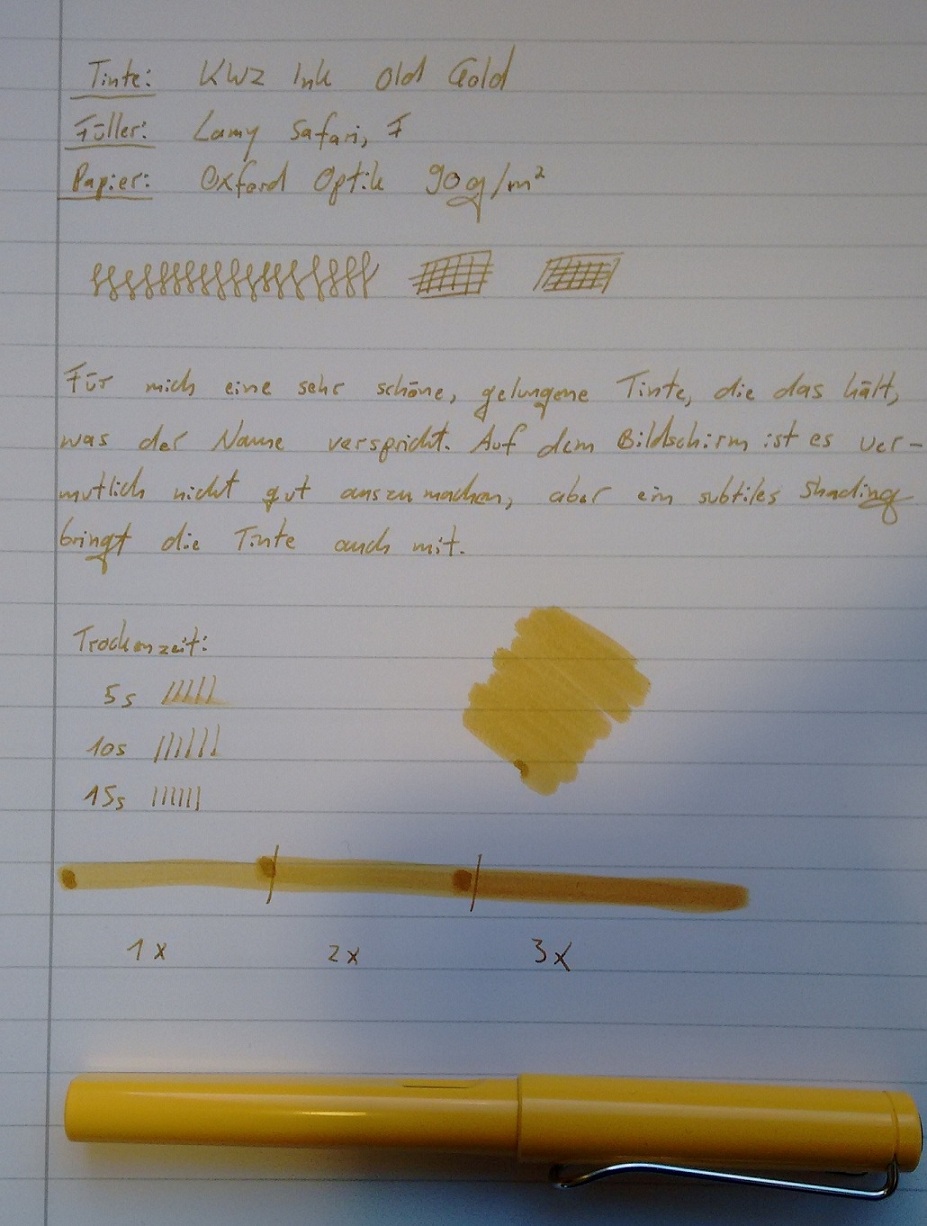 Tinte: KWZ Ink Old Gold
Füller: Lamy Safari, F
Papier: Oxford Optik 90g/m²
Für mich eine sehr schöne, gelungene Tinte, die das hält,
was der Name verspricht. Auf dem Bildschirm ist es ver-
mutlich nicht gut auszumachen, aber ein subtiles Shading
bringt die Tinte auch mit.
Trockenzeit:
5s
10s
15s
1x 2x 3x